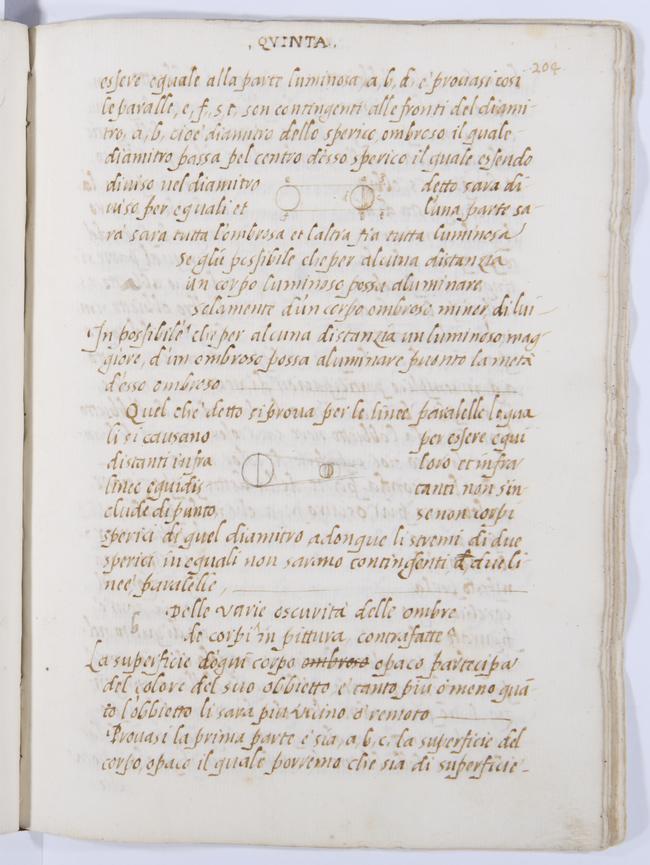 , QVINTA .
204
essere equale alla parte luminosa, a, b, d, e prouasi cosi
le paralle, e, f, s, t, son contingenti alle fronti del diami-
tro, a, b, cioè diamitro dello sperico ombroso il quale
diamitro passa pel centro desso sperico il quale essendo
diuiso nel diamitro detto sara di-
uiso per equali et l'una parte sa-
rà sara tutta l'ombrosa et l'altra fia tutta luminosa
Se gliè possibile che per alcuna distanzia
un corpo luminoso possa aluminare
solamente d'un corpo ombroso minor di lui
Inpossibile è che per alcuna distanzia un luminoso mag-
giore, d'un ombroso possa aluminare punto la metà
d'esso ombroso
Quel che detto si proua per le linee paralelle le qua
li si causano per essere equi
distanti infra loro et infra
linee equidis tanti non s'in-
clude di punto se non corpi
sperici di quel diamitro adonque li stremi di due
sperici inequali non sarano contingenti due li
nee paralelle,
Delle varie oscurità delle ombre
b
de corpi in pittura contrafatte
La superficie dogni corpo ombroso opaco partecipa
del colore del suo obbietto e tanto più o meno quã
to l'obbietto li sara più uicino o remoto
Prouasi la prima parte e sia, a, b, c, la superficie del
corpo, opaco il quale porremo che sia di superficie-